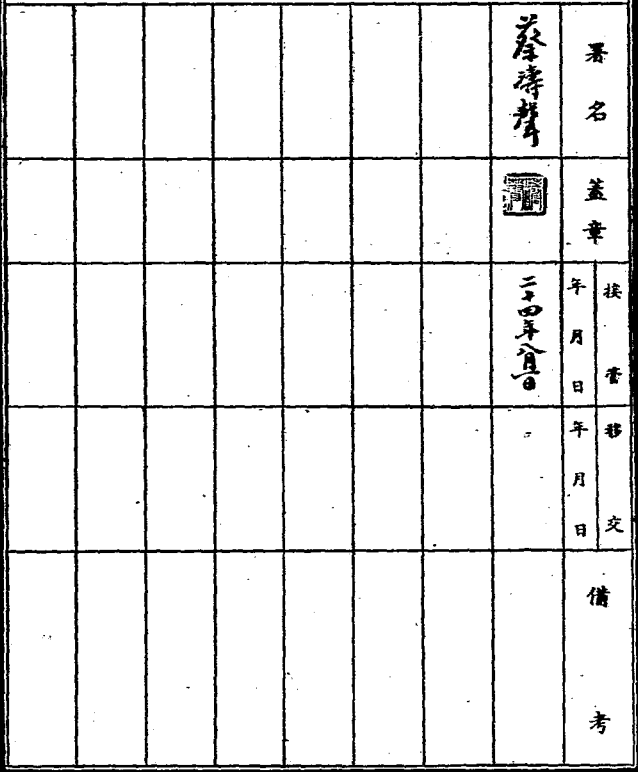 署名
蓋章
接管
年月日
移交
年月日
備考
蔡濤聲
二十四年八月一日